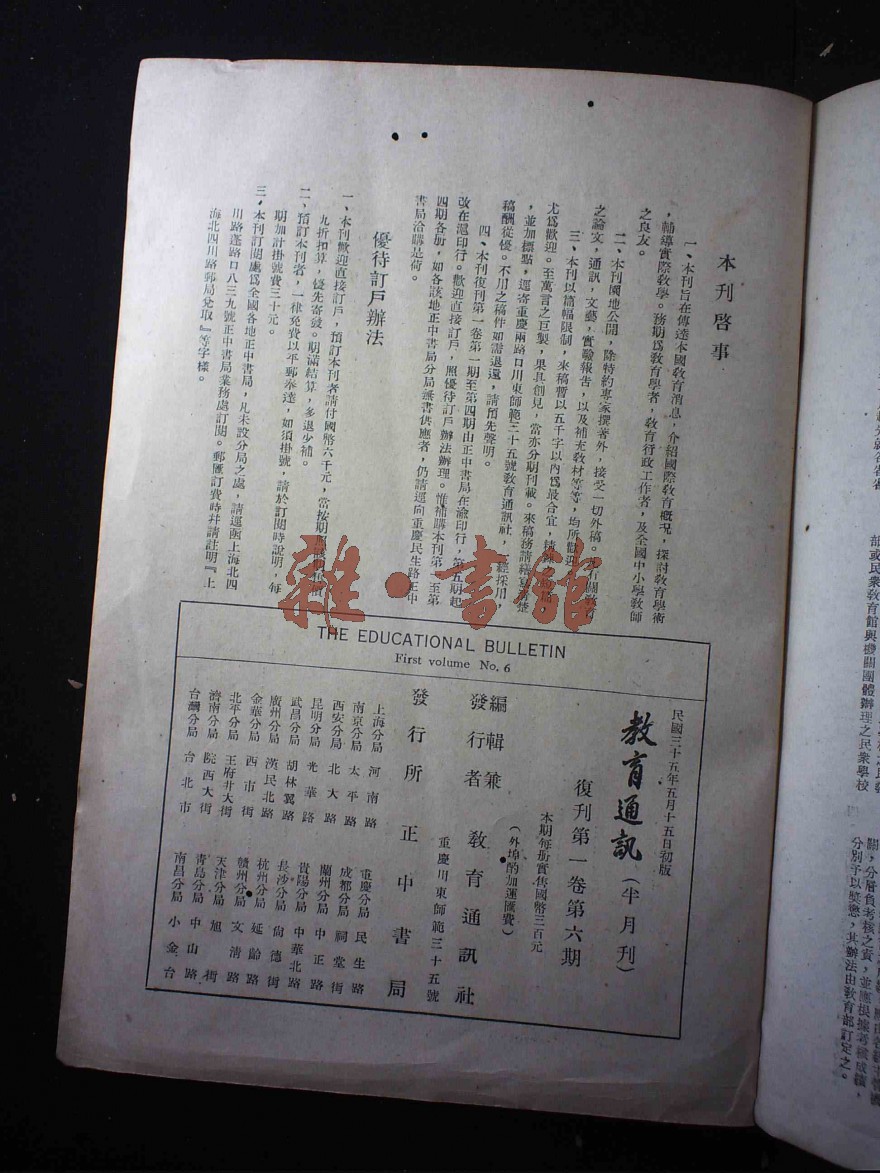 本刊啓事
一、本刊旨在傳達本國教育消息，介紹國際教育概况，探討教育學術
，輔導實際教學。務期爲教育學者，教育行政工作者，及全國中小學教師
之良友。
二、本刊園地公開，除特約專家撰著外，接受一切外稿。
之論文，通訊，文藝，實驗報告，以及補充教材等等，均所歡迎。
三、本刊以篇幅限制，來稿暫以五千字以內爲最合宜，
尤爲歡迎。至萬言之巨製，果具創見，當亦分期刊載。來稿務請繕寫清楚
，並加標點，逕寄重慶兩路口川東師範三十五號教育通訊社，一經採用，
稿酬從優。不用之稿件如需退還，請預先聲明。
四、本刊復刊第一卷第一期至第四期由正中書局在渝印行，第五期起
改在滬印行。歡迎直接訂戶，照優待訂戶辦法辦理。惟補購本刊第一至第
四期各册，如各該地正中書局分局無書供應者，仍請逕向重慶民生路正中
書局洽購是荷。
優待訂戶辦法
一、本刊歡迎直接訂戶，預訂本刊者請付國幣六千元，當按期
九折扣算，優先寄發。期滿結算，多退少補。
二、預訂本刊者，一律免費以平郵奉達，如須掛號，請於訂閱時說明，每
期加計掛號費三十元。
三、本刊訂閱處爲全國各地正中書局，凡未設分局之處，請逕函上海北四
川路蓬路口八三九號正中書局業務處訂閱。郵匯訂費時幷請註明『上
海北四川路郵局兌取』等字樣。
THE EDUCATIONAL BULLETIN
First volume No. 6
民國三十五年五月十五日初版
教育通訊（半月刊）
復刊第一卷第六期
本期每册實售國幣三百元
（外埠酌加運匯費）
編輯兼
發行者 教育通訊社
重慶川東師範三十五號
發行所 正中書局
上海分局 河南路 重慶分局 民生路
南京分局 太平路 成都分局 祠堂街
西安分局 北大路 蘭州分局 中正路
昆明分局 光華路 貴陽分局 中華北路
武昌分局 胡林翼路 長沙分局 尙德街
廣州分局 漢民北路 杭州分局 延齡路
金華分局 西市街 贛州分局 文清路
北平分局 王府井大街 天津分局 旭街
濟南分局 院西大街 青島分局 中山路
台灣分局 台北市 南昌分局 小金台
雜·書館
部或民衆教育館與機關團體辦理之民衆學校
關，分層負考核之責，並應根據考核成績，
分別予以獎懲，其辦法由教育部訂定之。